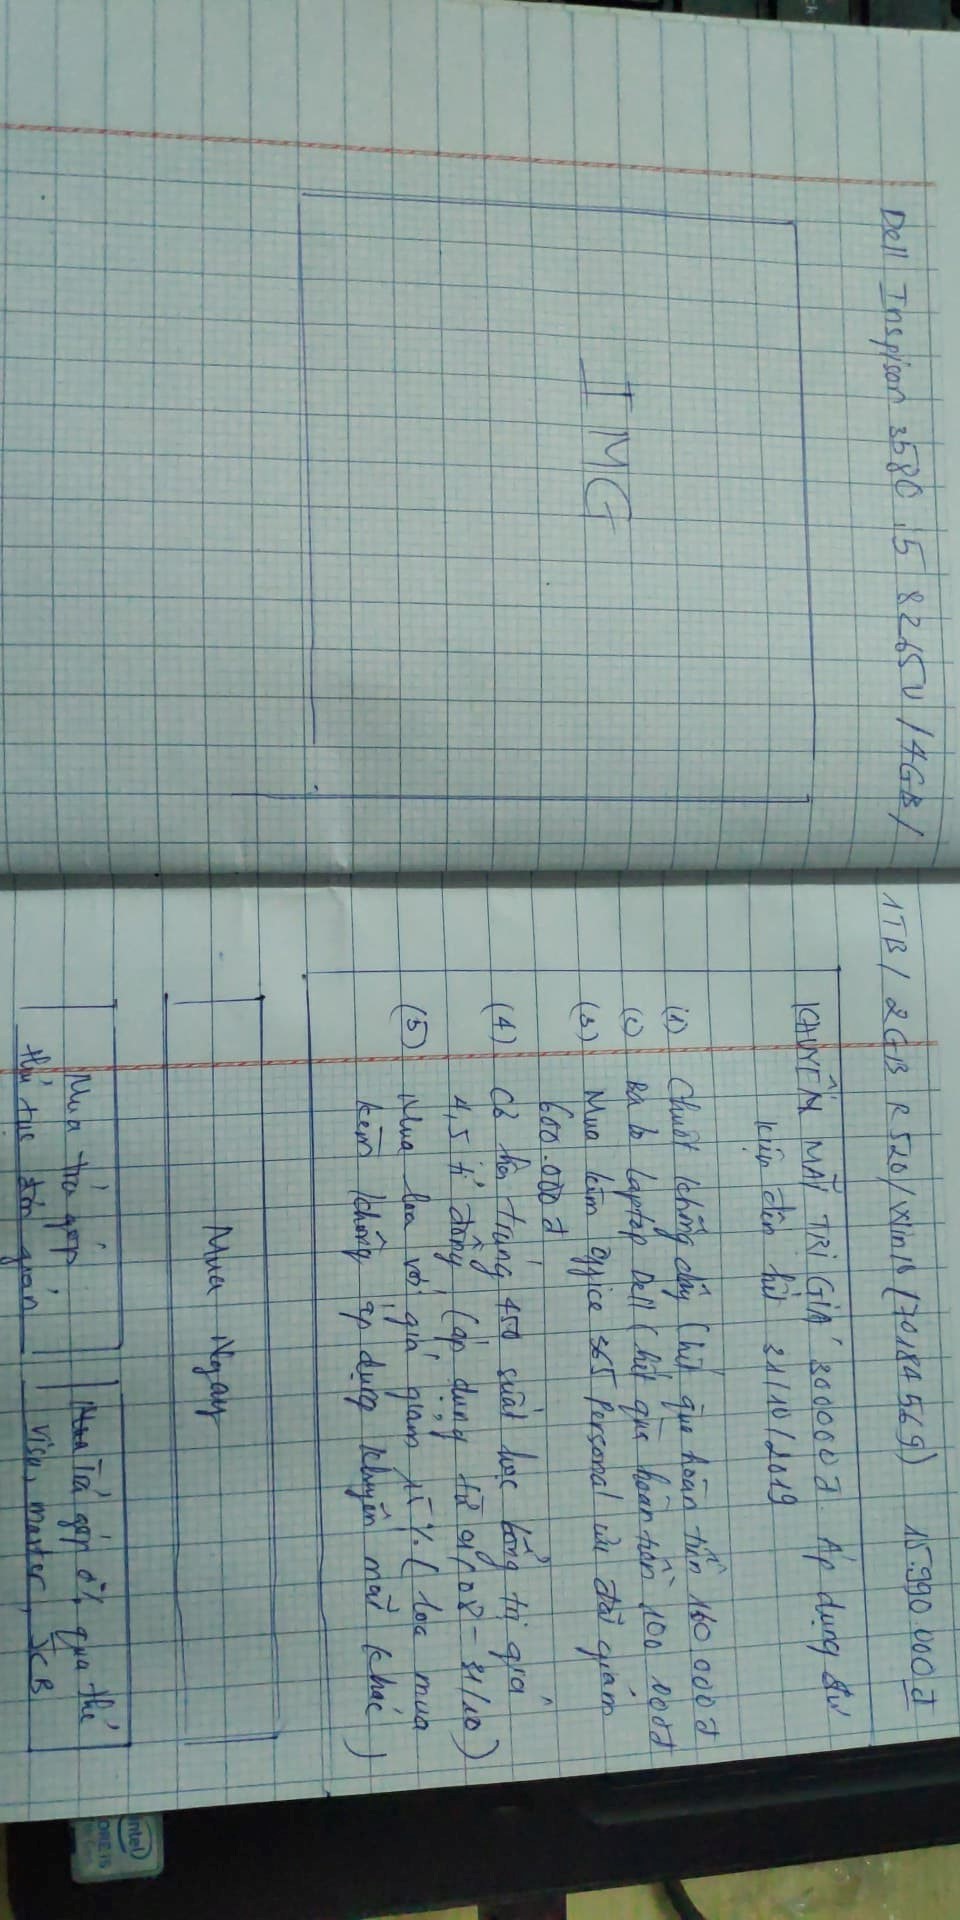 Dell Inspison 3580 i5 8265U /4GB/
1TB/ 2GB R520/Win10/(70184569) 15.990.000đ
IMG
KHUYẾN MÃI TRỊ GIÁ 300000đ. Áp dụng
kiếp đến hết 31/10/2019
(1) Chuột không dây (hết quà hoàn tiền 160 000đ
Ba lô laptop Dell (hết quà hoàn tiền 100 000đ
(3) Mua kèm office 365 Personal ưu đãi giảm
600.000đ
(4) Cơ hội trúng 450 suất học bổng trị giá
4,5 tỉ đồng (áp dụng từ 01/08 - 31/10)
(5) Mua loa với giá giảm 15% (loa mua
kèm không áp dụng khuyến mãi khác)
Mua Ngay
Mua trả góp
thủ tục đơn giản
Trả góp 0% qua thẻ
visa, master, JCB
intel